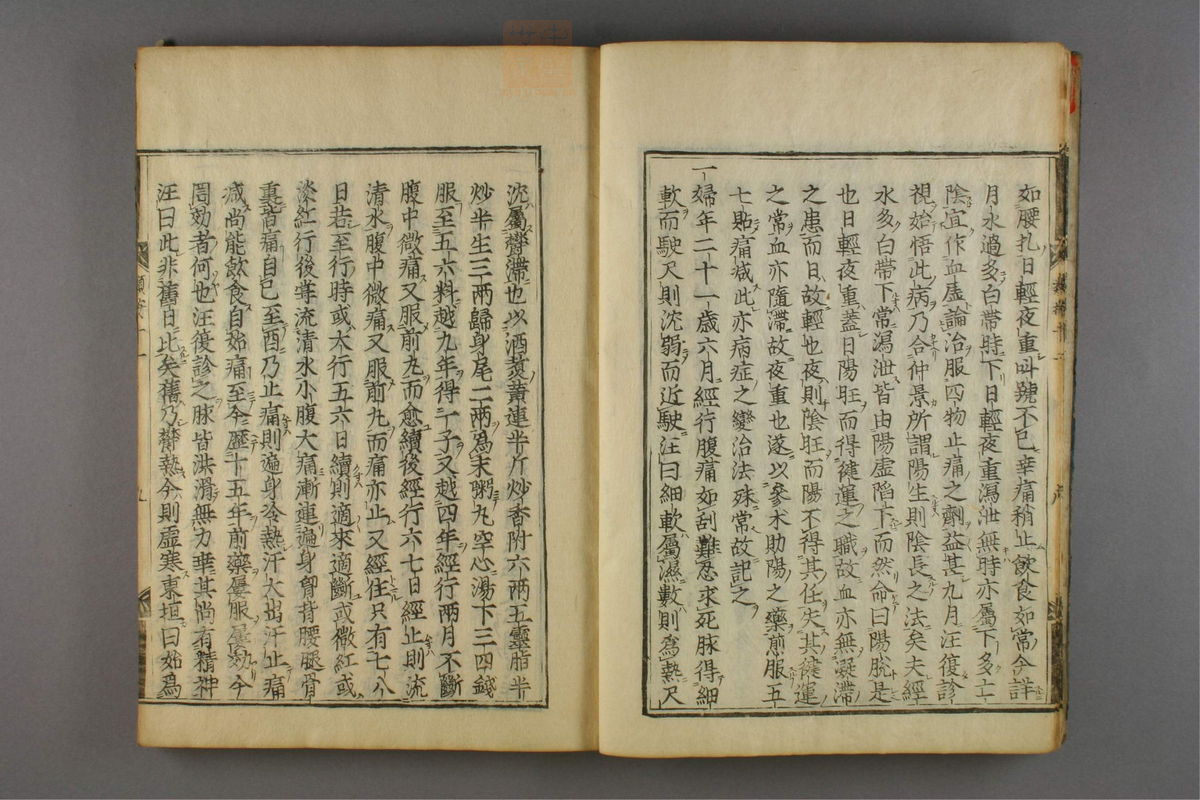 如腰扎日輕夜重叫號不已幸痛稍止飲食如常今詳
月水過多白帶時下日輕夜重瀉泄無時亦屬下多亡
陰宜作血虛論治服四物止痛之劑益甚九月汪復診
視始悟此病乃合仲景所謂陽生則陰長之法矣夫經
水多白帶下常瀉泄皆由陽虛陷下而然命曰陽脫是
也日輕夜重蓋日陽旺而得健運之職故血亦無凝滯
之患而日故輕也夜則陰旺而陽不得其任失其健運
之常血亦隨滯故夜重也遂以參术助陽之藥煎服五
七貼痛减此亦病症之變治法殊常故記之
一婦年二十一歲六月經行腹痛如刮難忍求死脉得細
軟而駛尺則沈弱而近駛汪曰細軟屬濕數則爲熱尺
沈屬欝滯也以酒煑黃連半斤炒香附六兩五靈脂半
炒半生三兩歸身尾二兩爲末粥丸空心湯下三四錢
服至五六料越九年得一子又越四年經行兩月不斷
腹中微痛又服前丸而愈續後經行六七日經止則流
清水腹中微痛又服前丸而痛亦止又經住只有七八
日若至行時或大行五六日續則適來適斷或微紅或
淡紅行後常流清水小腹大痛漸連遍身胷背腰腿骨
裏皆痛自巳至酉乃止痛則遍身冷熱汗大出汗止痛
减尚能飲食自始痛至今歷十五年前藥屢服屢効今
罔効者何也汪復診之脉皆洪滑無力幸其尚有精神
汪曰此非舊日比矣舊乃欝熱今則虛寒東垣曰始爲